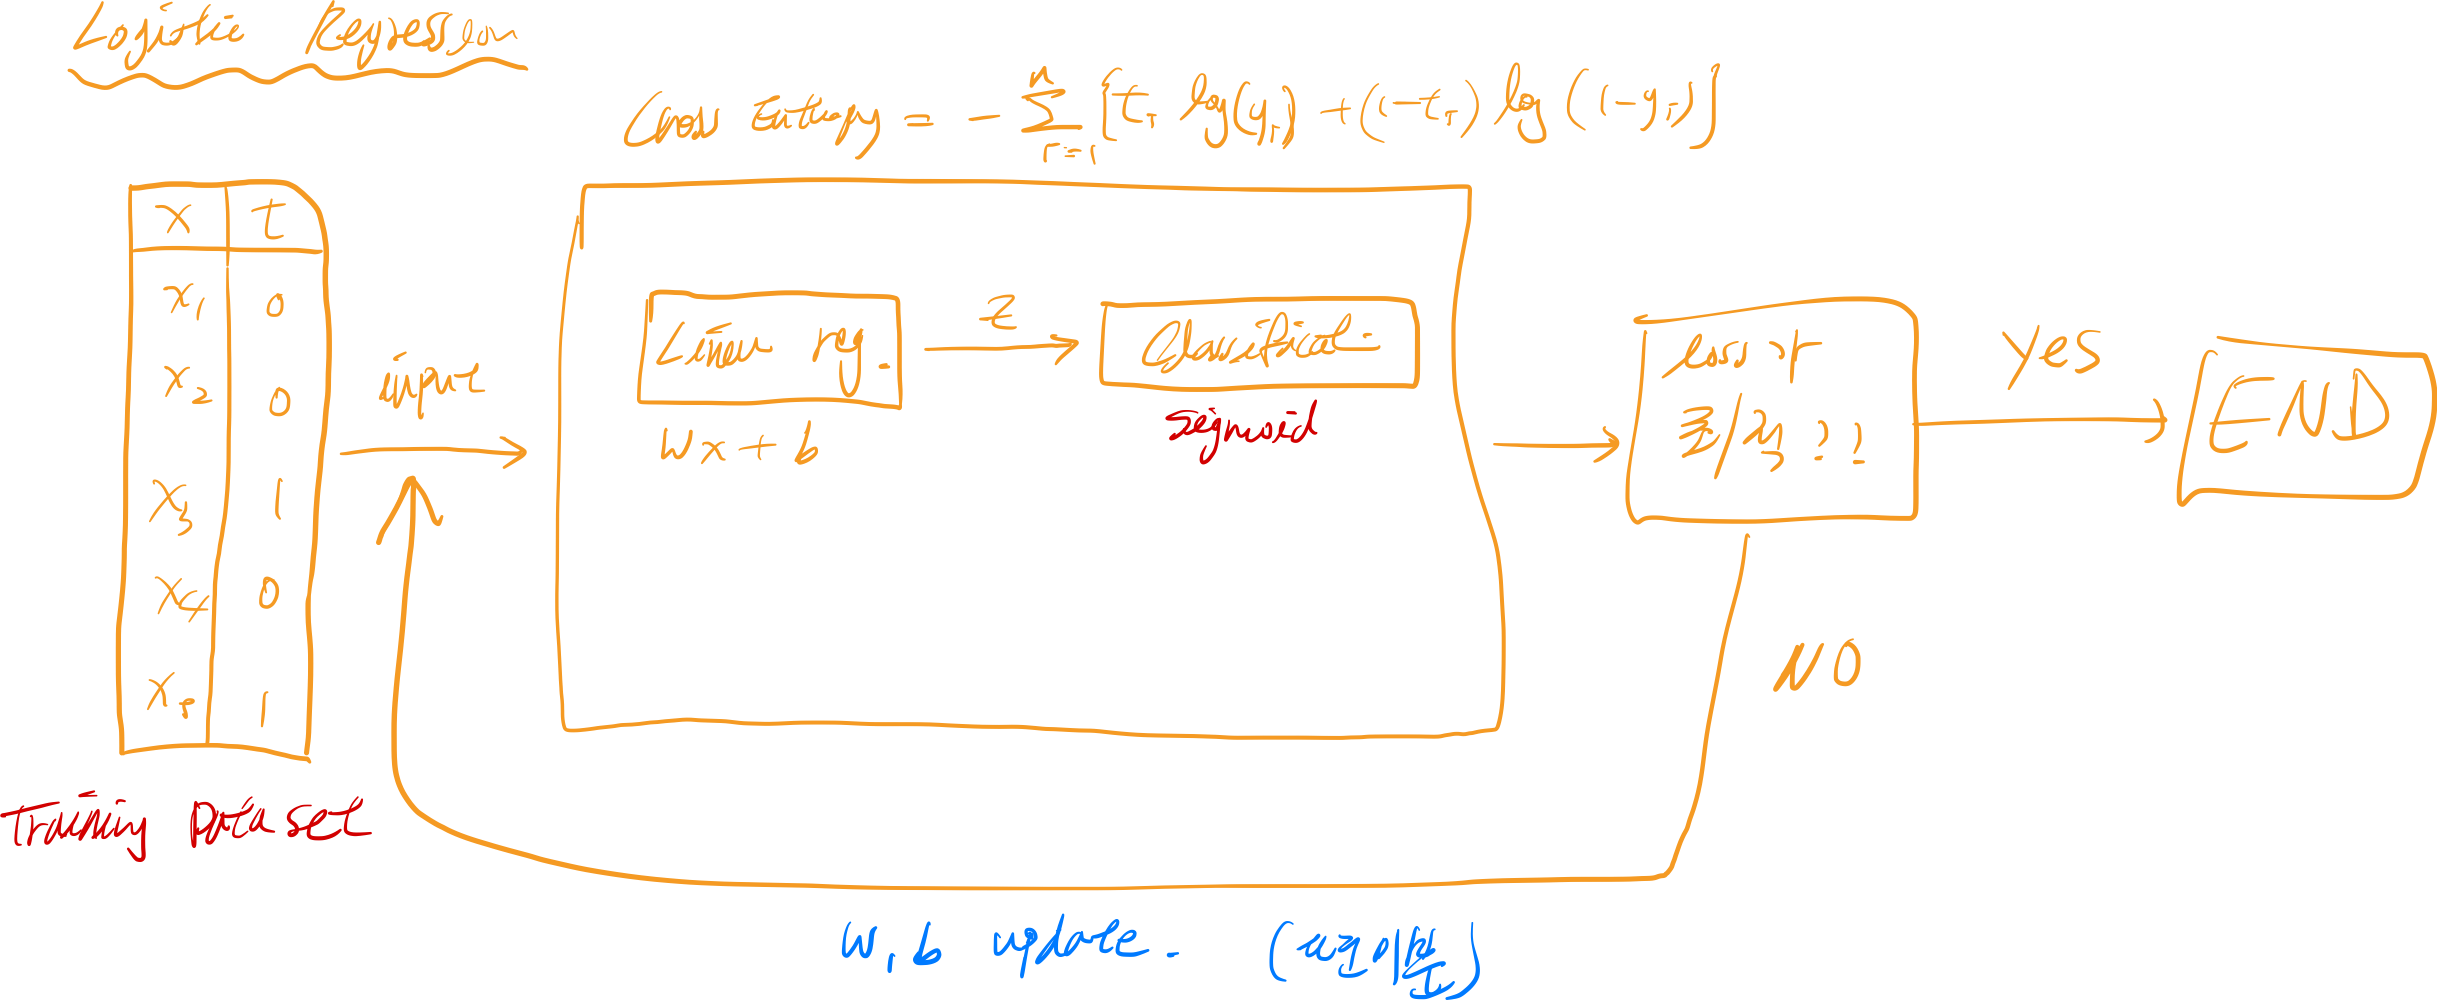 Logistic Regression
Cross Entropy = - Σ [tᵢ log(yᵢ) + (1-tᵢ) log (1-yᵢ)]
n
i=1
x t
x₁ 0
x₂ 0
x₃ 1
x₄ 0
x₅ 1
Training Data set
input
Linear reg.
Wx + b
z
Classificat
sigmoid
loss가
최소??
Yes
END
NO
W, b update. (편미분)